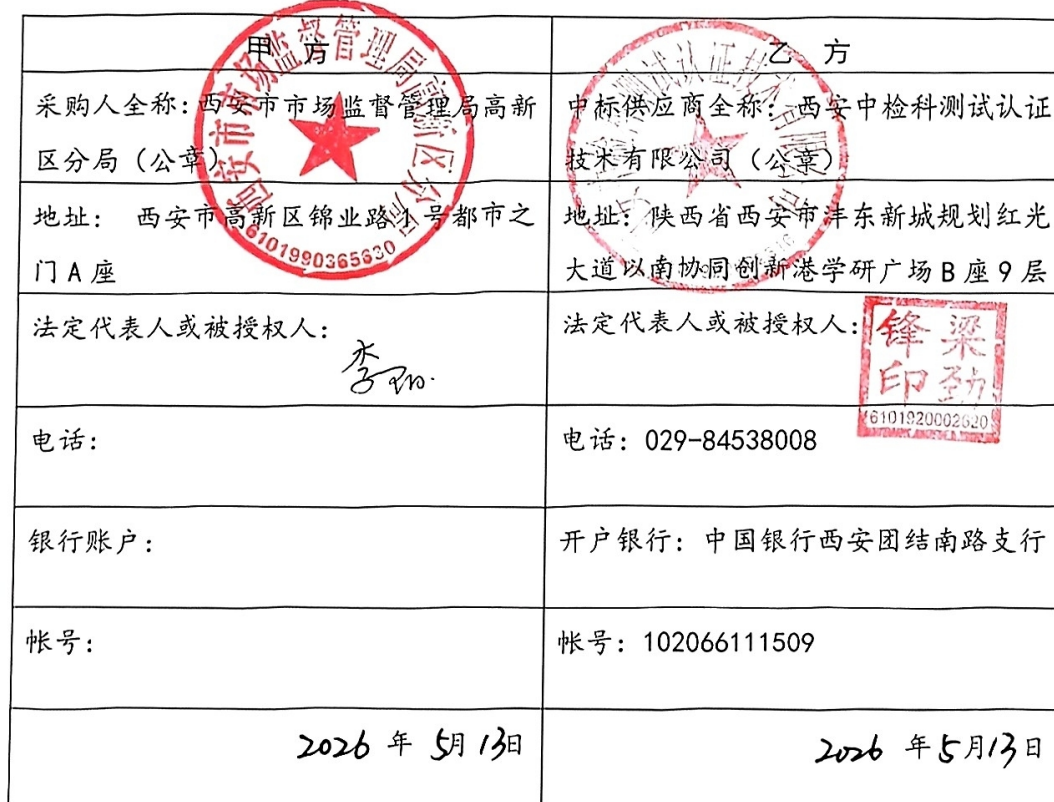 甲 方
乙 方
采购人全称：西安市市场监督管理局高新
区分局（公章）
中标供应商全称：西安中检科测试认证
技术有限公司（公章）
地址： 西安市高新区锦业路1号都市之
门A座
地址：陕西省西安市沣东新城规划红光
大道以南协同创新港学研广场B座9层
法定代表人或被授权人：
法定代表人或被授权人：
电话：
电话：029-84538008
银行账户：
开户银行：中国银行西安团结南路支行
帐号：
帐号：102066111509
2026 年 5月13日
2026 年5月13日
西安市市场监督管理局高新区分局
6101990365630
梁劲锋印
6101920002620